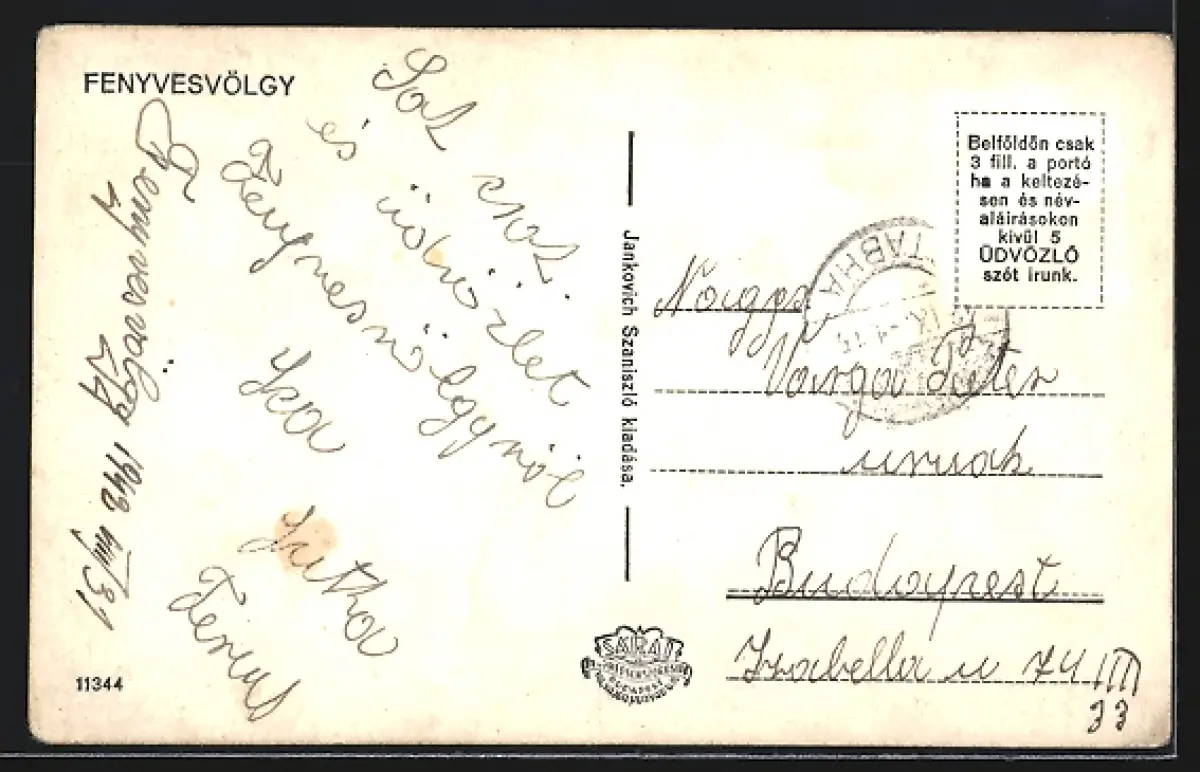 FENYVESVÖLGY
Sok csók
és üdvözlet
Fenyvesvölgyről
Ica
Jutka
Ferenc
1942 VIII 31
11344
Jankovich Szaniszló kiadása.
Belföldön csak
3 fill. a portó
ha a keltezé-
sen és név-
aláirásokon
kivül 5
ÜDVÖZLŐ
szót irunk.
TÁBHA
Varga Péter
urnak
Budapest
Izabella u 74 III
33
BUDAPEST